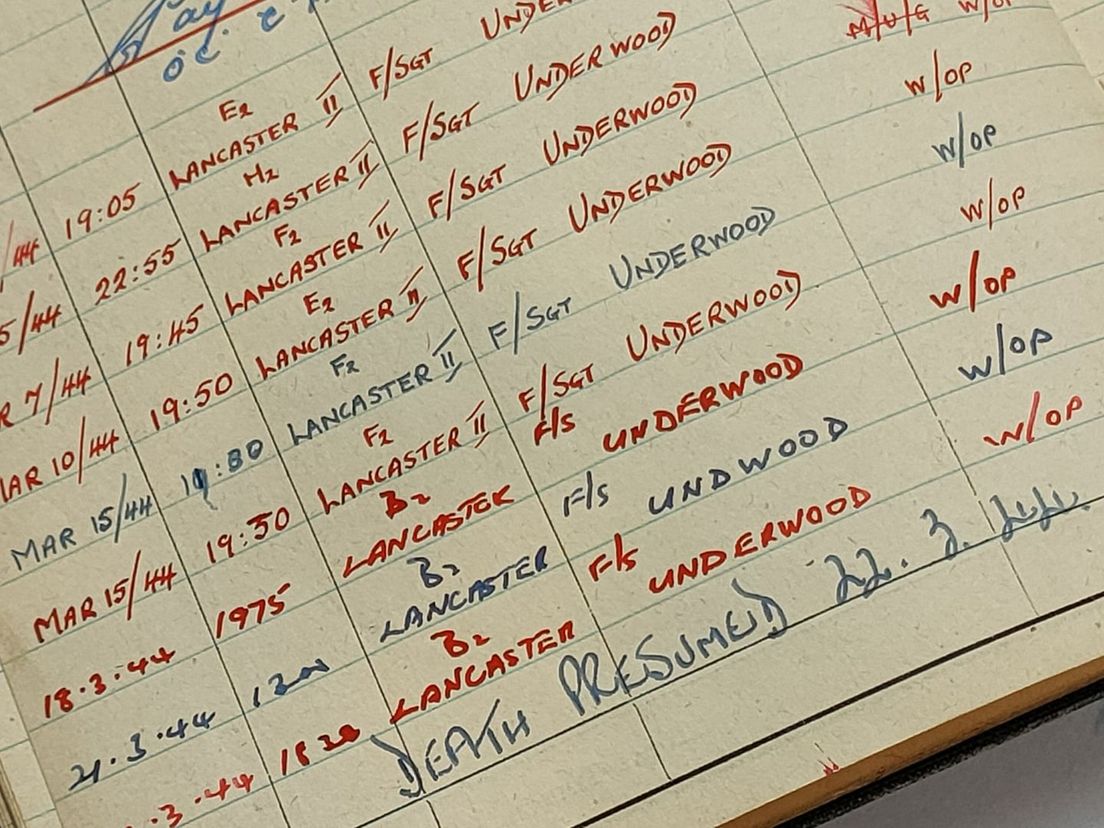 O.C.
E2
19:05 LANCASTER II F/SGT UNDERWOOD W/OP
/44
H2
5/44 22:55 LANCASTER II F/SGT UNDERWOOD W/OP
F2
R 7/44 19:45 LANCASTER II F/SGT UNDERWOOD W/OP
E2
MAR 10/44 19:50 LANCASTER II F/SGT UNDERWOOD W/OP
F2
MAR 15/44 LANCASTER II F/SGT UNDERWOOD
F2
MAR 15/44 LANCASTER II F/SGT UNDERWOOD W/OP
B2
18.3.44 1975 LANCASTER F/S UNDERWOOD W/OP
B2
21.3.44 LANCASTER F/S UNDWOOD W/OP
B2
.3.44 LANCASTER F/S UNDERWOOD
DEATH PRESUMED 22.3.44.